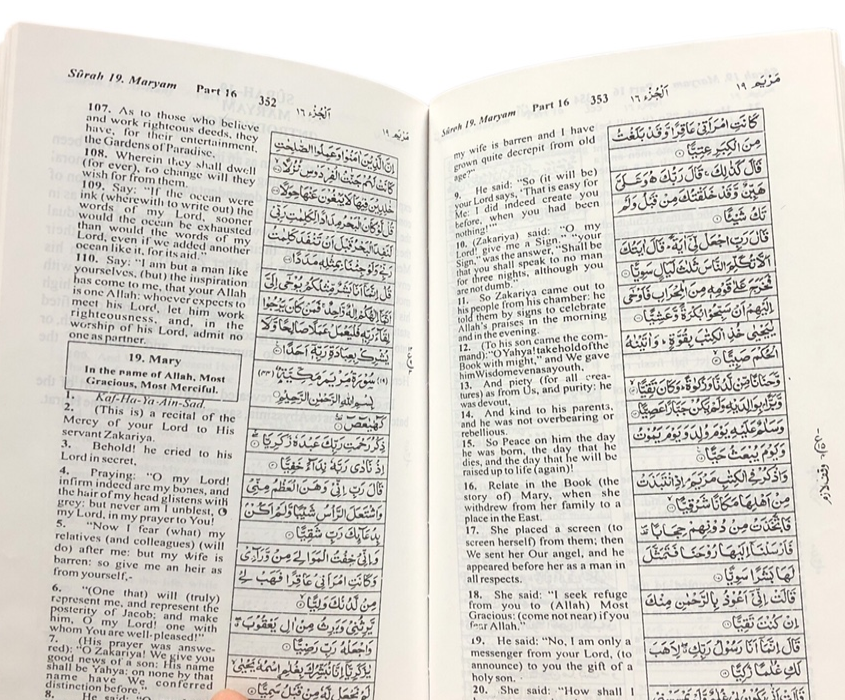 Sûrah 19. Maryam Part 16 352 اَلْجُزْء ١٦ مَرْيَم ١٩
107. As to those who believe
and work righteous deeds, they
have, for their entertainment,
the Gardens of Paradise.
108. Wherein they shall dwell
(for ever), no change will they
wish for from them.
109. Say: "If the ocean were
ink (wherewith to write out) the
words of my Lord, sooner
would the ocean be exhausted
than would the words of my
Lord, even if we added another
ocean like it, for its aid."
110. Say: "I am but a man like
yourselves, (but) the inspiration
has come to me, that your Allah
is one Allah: whoever expects to
meet his Lord, let him work
righteousness, and, in the
worship of his Lord, admit no
one as partner.
19. Mary
In the name of Allah, Most
Gracious, Most Merciful.
1. Kaf-Ha-Ya-Ain-Sad.
2. (This) is a recital of the
Mercy of your Lord to His
servant Zakariya.
3. Behold! he cried to his
Lord in secret,
4. Praying: "O my Lord!
infirm indeed are my bones, and
the hair of my head glistens with
grey: but never am I unblest, O
my Lord, in my prayer to You!
5. "Now I fear (what) my
relatives (and colleagues) (will
do) after me: but my wife is
barren: so give me an heir as
from yourself,-
6. "(One that) will (truly)
represent me, and represent the
posterity of Jacob; and make
him, O my Lord! one with
whom You are well-pleased!"
7. (His prayer was answe-
red): "O Zakariya! We give you
good news of a son: His name
shall be Yahya: on none by that
name have We conferred
distinction before."
8. He said: "O
إِنَّ الَّذِينَ آمَنُوا وَعَمِلُوا الصَّالِحَاتِ
كَانَتْ لَهُمْ جَنَّاتُ الْفِرْدَوْسِ نُزُلًا
خَالِدِينَ فِيهَا لَا يَبْغُونَ عَنْهَا حِوَلًا
قُل لَّوْ كَانَ الْبَحْرُ مِدَادًا لِّكَلِمَاتِ رَبِّي
لَنَفِدَ الْبَحْرُ قَبْلَ أَن تَنفَدَ كَلِمَاتُ
رَبِّي وَلَوْ جِئْنَا بِمِثْلِهِ مَدَدًا
قُلْ إِنَّمَا أَنَا بَشَرٌ مِّثْلُكُمْ يُوحَى إِلَيَّ
أَنَّمَا إِلَهُكُمْ إِلَهٌ وَاحِدٌ فَمَن كَانَ يَرْجُوا
لِقَاءَ رَبِّهِ فَلْيَعْمَلْ عَمَلًا صَالِحًا وَلَا
يُشْرِكْ بِعِبَادَةِ رَبِّهِ أَحَدًا
(١٩) سُورَةُ مَرْيَمَ مَكِّيَّةٌ (٤٤)
بِسْمِ اللهِ الرَّحْمَنِ الرَّحِيمِ
كهيعص
ذِكْرُ رَحْمَتِ رَبِّكَ عَبْدَهُ زَكَرِيَّا
إِذْ نَادَى رَبَّهُ نِدَاءً خَفِيًّا
قَالَ رَبِّ إِنِّي وَهَنَ الْعَظْمُ مِنِّي
وَاشْتَعَلَ الرَّأْسُ شَيْبًا وَلَمْ أَكُنْ
بِدُعَائِكَ رَبِّ شَقِيًّا
وَإِنِّي خِفْتُ الْمَوَالِيَ مِن وَرَاءِي
وَكَانَتِ امْرَأَتِي عَاقِرًا فَهَبْ لِي
مِن لَّدُنكَ وَلِيًّا
يَرِثُنِي وَيَرِثُ مِنْ آلِ يَعْقُوبَ
وَاجْعَلْهُ رَبِّ رَضِيًّا
يَا زَكَرِيَّا إِنَّا نُبَشِّرُكَ بِغُلَامٍ اسْمُهُ يَحْيَى
لَمْ نَجْعَل لَّهُ مِن قَبْلُ سَمِيًّا
Sûrah 19. Maryam Part 16 353 اَلْجُزْء ١٦ مَرْيَم ١٩
my wife is barren and I have
grown quite decrepit from old
age?"
9. He said: "So (it will be)
your Lord says, 'That is easy for
Me: I did indeed create you
before, when you had been
nothing!'"
10. (Zakariya) said: "O my
Lord! give me a Sign." "your
Sign," was the answer, "Shall be
that you shall speak to no man
for three nights, although you
are not dumb."
11. So Zakariya came out to
his people from his chamber: he
told them by signs to celebrate
Allah's praises in the morning
and in the evening.
12. (To his son came the com-
mand): "O Yahya! take hold of the
Book with might," and We gave
him Wisdom even as a youth,
13. And piety (for all crea-
tures) as from Us, and purity: he
was devout,
14. And kind to his parents,
and he was not overbearing or
rebellious.
15. So Peace on him the day
he was born, the day that he
dies, and the day that he will be
raised up to life (again)!
16. Relate in the Book (the
story of) Mary, when she
withdrew from her family to a
place in the East.
17. She placed a screen (to
screen herself) from them; then
We sent Her Our angel, and he
appeared before her as a man in
all respects.
18. She said: "I seek refuge
from you to (Allah) Most
Gracious: (come not near) if you
fear Allah."
19. He said: "No, I am only a
messenger from your Lord, (to
announce) to you the gift of a
holy son.
20. She said: "How shall I
كَانَتِ امْرَأَتِي عَاقِرًا وَقَدْ بَلَغْتُ
مِنَ الْكِبَرِ عِتِيًّا
قَالَ كَذَلِكَ قَالَ رَبُّكَ هُوَ عَلَيَّ
هَيِّنٌ وَقَدْ خَلَقْتُكَ مِن قَبْلُ وَلَمْ
تَكُ شَيْئًا
قَالَ رَبِّ اجْعَل لِّي آيَةً قَالَ آيَتُكَ
أَلَّا تُكَلِّمَ النَّاسَ ثَلَاثَ لَيَالٍ سَوِيًّا
فَخَرَجَ عَلَى قَوْمِهِ مِنَ الْمِحْرَابِ فَأَوْحَى
إِلَيْهِمْ أَن سَبِّحُوا بُكْرَةً وَعَشِيًّا
يَا يَحْيَى خُذِ الْكِتَابَ بِقُوَّةٍ وَآتَيْنَاهُ
الْحُكْمَ صَبِيًّا
وَحَنَانًا مِّن لَّدُنَّا وَزَكَاةً وَكَانَ تَقِيًّا
وَبَرًّا بِوَالِدَيْهِ وَلَمْ يَكُن جَبَّارًا عَصِيًّا
وَسَلَامٌ عَلَيْهِ يَوْمَ وُلِدَ وَيَوْمَ يَمُوتُ
وَيَوْمَ يُبْعَثُ حَيًّا
وَاذْكُرْ فِي الْكِتَابِ مَرْيَمَ إِذِ انتَبَذَتْ
مِنْ أَهْلِهَا مَكَانًا شَرْقِيًّا
فَاتَّخَذَتْ مِن دُونِهِمْ حِجَابًا
فَأَرْسَلْنَا إِلَيْهَا رُوحَنَا فَتَمَثَّلَ
لَهَا بَشَرًا سَوِيًّا
قَالَتْ إِنِّي أَعُوذُ بِالرَّحْمَنِ مِنكَ
إِن كُنتَ تَقِيًّا
قَالَ إِنَّمَا أَنَا رَسُولُ رَبِّكِ لِأَهَبَ
لَكِ غُلَامًا زَكِيًّا